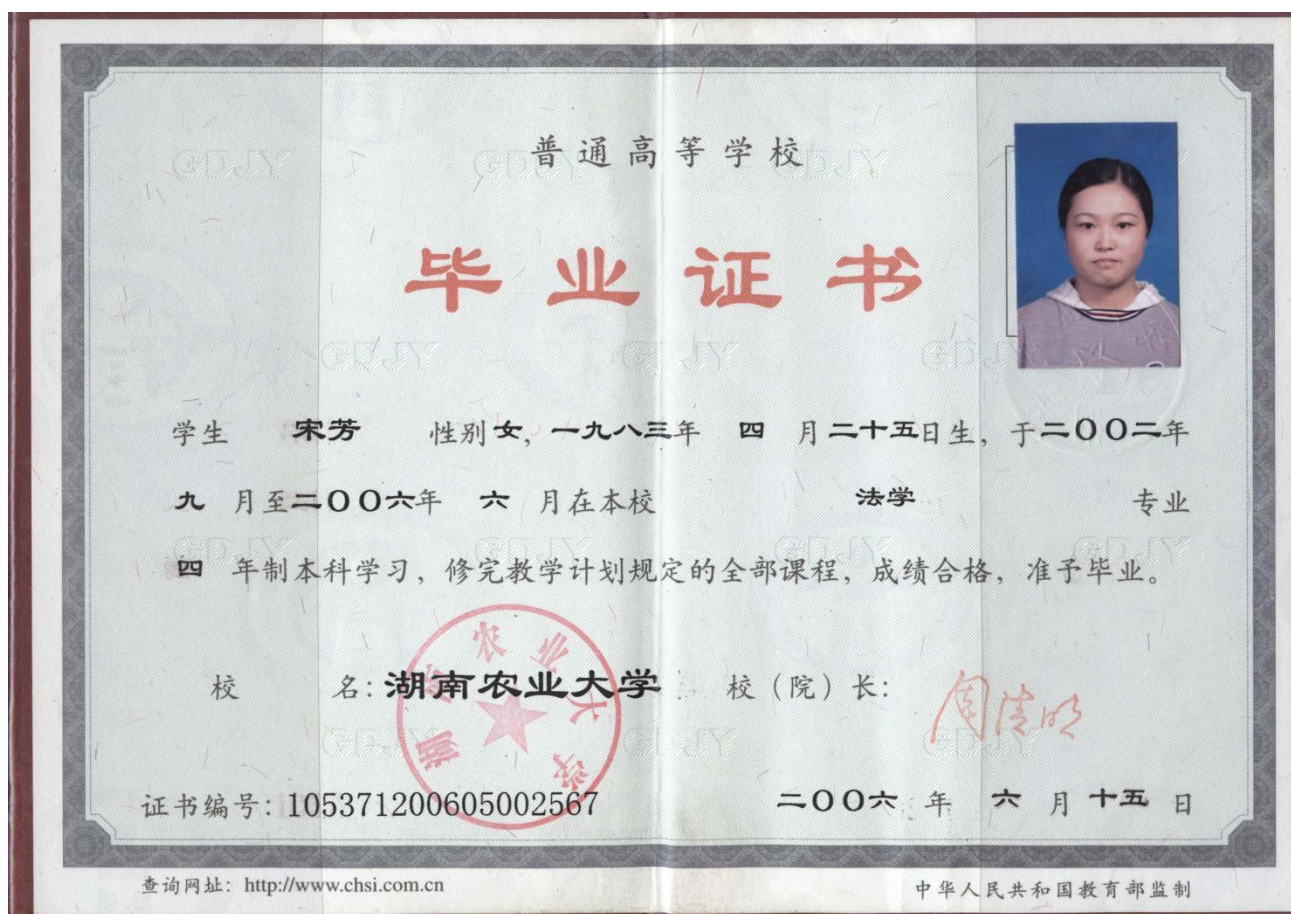 普通高等学校
毕业证书
学生 宋芳 性别女,一九八三年 四 月二十五日生,于二〇〇二年
九 月至二〇〇六年 六 月在本校 法学 专业
四 年制本科学习,修完教学计划规定的全部课程,成绩合格,准予毕业。
校 名:湖南农业大学 校(院)长:周清明
湖南农业大学
证书编号:105371200605002567 二〇〇六 年 六 月 十五 日
查询网址:http://www.chsi.com.cn 中华人民共和国教育部监制